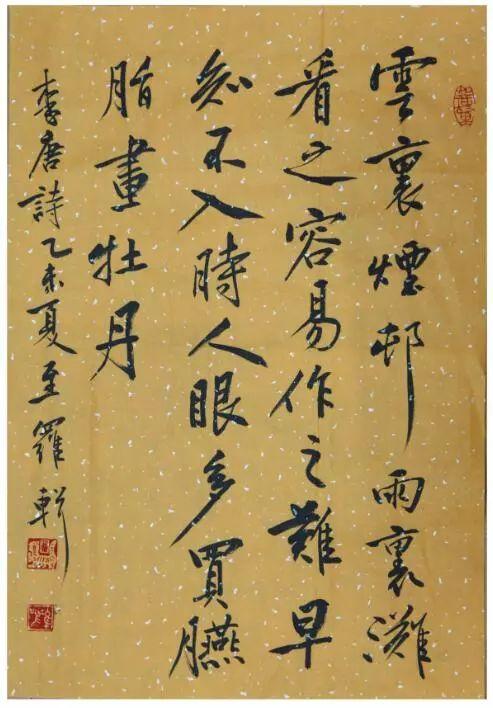 雲裏煙邨雨裏灘
看之容易作之難早
知不入時人眼多買臙
脂畫牡丹
李唐詩乙未夏至羅軒